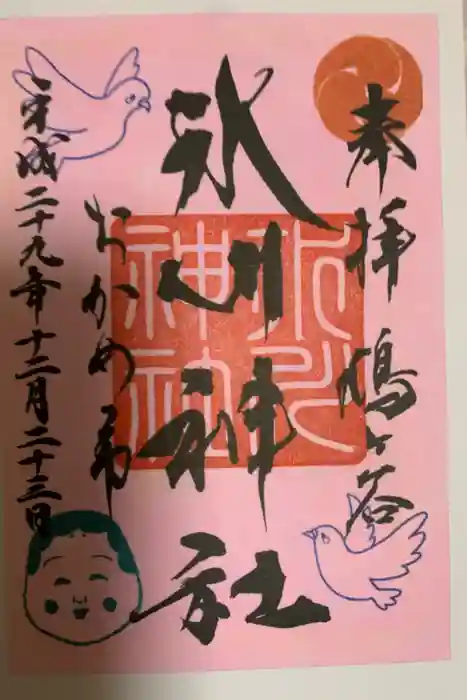 奉拝 鳩ヶ谷
氷川神社
氷川
神社
おかめ市
平成二十九年十二月二十三日